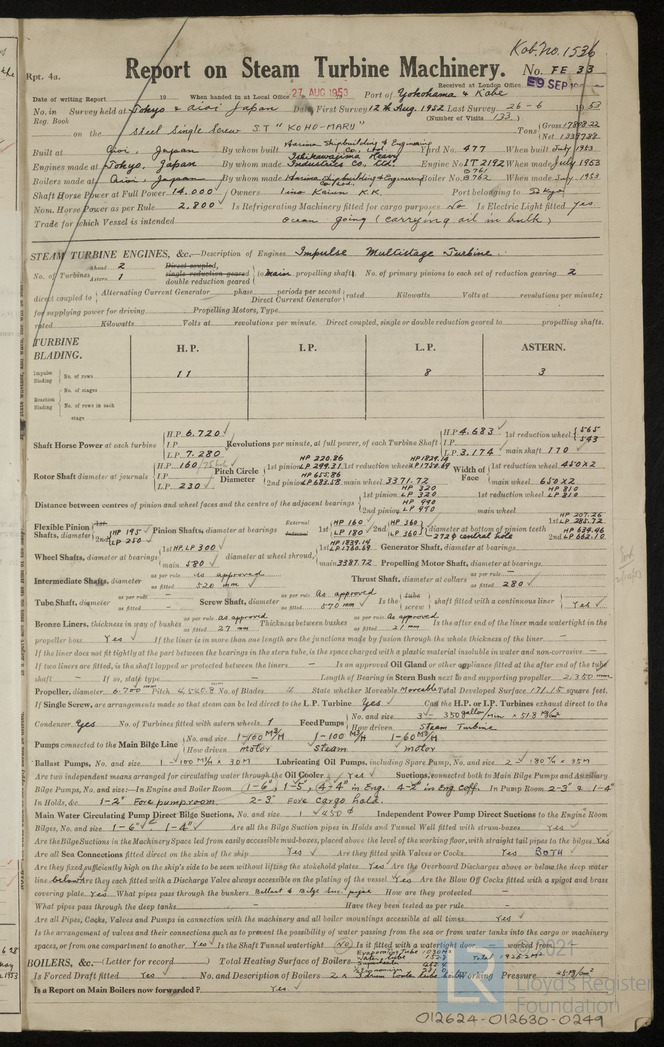 Kob. No. 1536
Rpt. 4a.
Report on Steam Turbine Machinery. No. FE 33
Received at London Office 9 SEP
Date of writing Report 19 When handed in at Local Office 27 AUG 1953 Port of Yokohama & Kobe
No. in Survey held at Tokyo & Aioi Japan Date, First Survey 12th Aug. 1952 Last Survey 26-6 1953
Reg. Book (Number of Visits 133)
on the Steel Single Screw S.T "KOHO-MARU" Tons Gross Net
Built at Aioi, Japan By whom built Harima Shipbuilding & Engineering Co. Ltd. Yard No. 477 When built July 1953
Engines made at Tokyo, Japan By whom made Ishikawajima Heavy Industries Co., Ltd. Engine No. 1T2192 When made July 1953
Boilers made at Aioi, Japan By whom made Harima Shipbuilding & Engineering Co. Ltd. Boiler No. B761 B762 When made July 1953
Shaft Horse Power at Full Power 14,000 Owners Iino Kaiun K.K. Port belonging to Tokyo
Nom. Horse Power as per Rule 2,800 Is Refrigerating Machinery fitted for cargo purposes No Is Electric Light fitted Yes
Trade for which Vessel is intended Ocean going (carrying oil in bulk)
STEAM TURBINE ENGINES, &c.—Description of Engines Impulse Multistage Turbine.
No. of Turbines Ahead 2 Astern 1 Direct coupled, single reduction geared double reduction geared to main propelling shaft. No. of primary pinions to each set of reduction gearing 2
direct coupled to Alternating Current Generator phase periods per second Direct Current Generator rated Kilowatts Volts at revolutions per minute;
for supplying power for driving Propelling Motors, Type
rated Kilowatts Volts at revolutions per minute. Direct coupled, single or double reduction geared to propelling shafts.
TURBINE BLADING. H.P. I.P. L.P. ASTERN.
Impulse Blading No. of rows 11 8 3
No. of stages
Reaction Blading No. of rows in each stage
Shaft Horse Power at each turbine H.P. 6.720 I.P. L.P. 7.280 Revolutions per minute, at full power, of each Turbine Shaft H.P. 4.683 I.P. L.P. 3.174 1st reduction wheel 565 543 main shaft 110
Rotor Shaft diameter at journals H.P. 160 I.P. L.P. 230 Pitch Circle Diameter 1st pinion HP 220.86 LP 299.31 1st reduction wheel HP 1829.14 LP 1750.69 Width of Face 1st reduction wheel 450 x 2
2nd pinion HP 655.86 LP 683.58 main wheel 3371.72 main wheel 650 x 2
Distance between centres of pinion and wheel faces and the centre of the adjacent bearings 1st pinion HP 320 LP 320 2nd pinion HP 490 LP 490 1st reduction wheel HP 810 LP 810 main wheel
Flexible Pinion Shafts, diameter 1st 2nd HP 195 LP 250 Pinion Shafts, diameter at bearings External Internal 1st HP 160 LP 180 2nd HP 360 LP 360 diameter at bottom of pinion teeth 1st HP 207.26 LP 285.72 2nd HP 634.46 LP 662.10
272 φ central hole
Wheel Shafts, diameter at bearings 1st HP LP 300 main 580 diameter at wheel shroud, 1st HP 1839.14 LP 1760.69 main 3387.72 Generator Shaft, diameter at bearings Propelling Motor Shaft, diameter at bearings
Intermediate Shafts, diameter as per rule as approved as fitted 520 mm Thrust Shaft, diameter at collars as per rule – as fitted 280
Tube Shaft, diameter as per rule – as fitted – Screw Shaft, diameter as per rule As approved as fitted 570 mm Is the tube screw shaft fitted with a continuous liner Yes
Bronze Liners, thickness in way of bushes as per rule as approved as fitted 27 mm Thickness between bushes as per rule As approved as fitted 21 mm Is the after end of the liner made watertight in the
propeller boss Yes If the liner is in more than one length are the junctions made by fusion through the whole thickness of the liner –
If the liner does not fit tightly at the part between the bearings in the stern tube, is the space charged with a plastic material insoluble in water and non-corrosive –
If two liners are fitted, is the shaft lapped or protected between the liners – Is an approved Oil Gland or other appliance fitted at the after end of the tube
shaft – If so, state type – Length of Bearing in Stern Bush next to and supporting propeller 2,350 mm
Propeller, diameter 6.700 mm Pitch 4,540.8 No. of Blades 4 State whether Moveable Moveable Total Developed Surface 171.15 square feet.
If Single Screw, are arrangements made so that steam can be led direct to the L.P. Turbine Yes Can the H.P. or I.P. Turbines exhaust direct to the
Condenser Yes No. of Turbines fitted with astern wheels 1 Feed Pumps No. and size 3 - 350 gallon/min x 51.8 How driven Steam Turbine
Pumps connected to the Main Bilge Line No. and size 1-100 M³/H 1-100 M³/H 1-60 M³/H How driven motor steam motor
Ballast Pumps, No. and size 1 - 100 M³/H x 30M Lubricating Oil Pumps, including Spare Pump, No. and size 2 - 180 x 35M
Are two independent means arranged for circulating water through the Oil Cooler Yes Suctions, connected both to Main Bilge Pumps and Auxiliary
Bilge Pumps, No. and size:—In Engine and Boiler Room 1-6", 1-5", 4-4" in Eng. 4-2" in Eng coff. In Pump Room 2-3" & 1-4"
In Holds, &c. 1-2" Fore pumproom 2-3" Fore cargo hold.
Main Water Circulating Pump Direct Bilge Suctions, No. and size 1 450 φ Independent Power Pump Direct Suctions to the Engine Room
Bilges, No. and size 1-6" 1-4" Are all the Bilge Suction pipes in Holds and Tunnel Well fitted with strum-boxes Yes
Are the Bilge Suctions in the Machinery Space led from easily accessible mud-boxes, placed above the level of the working floor, with straight tail pipes to the bilges Yes
Are all Sea Connections fitted direct on the skin of the ship Yes Are they fitted with Valves or Cocks Yes BOTH
Are they fixed sufficiently high on the ship's side to be seen without lifting the stokehold plates Yes Are the Overboard Discharges above or below the deep water
line below Are they each fitted with a Discharge Valve always accessible on the plating of the vessel Yes Are the Blow Off Cocks fitted with a spigot and brass
covering plate Yes What pipes pass through the bunkers Ballast & Bilge suc. pipe How are they protected –
What pipes pass through the deep tanks – Have they been tested as per rule –
Are all Pipes, Cocks, Valves and Pumps in connection with the machinery and all boiler mountings accessible at all times Yes
Is the arrangement of valves and their connections such as to prevent the possibility of water passing from the sea or from water tanks into the cargo or machinery
spaces, or from one compartment to another Yes Is the Shaft Tunnel watertight No Is it fitted with a watertight door – worked from –
BOILERS, &c.—(Letter for record) Total Heating Surface of Boilers
Is Forced Draft fitted Yes No. and Description of Boilers 2 x 2 drum Working Pressure 45
Is a Report on Main Boilers now forwarded? Yes
© 2021
LR
Lloyd's Register
Foundation
012624-012630-0249